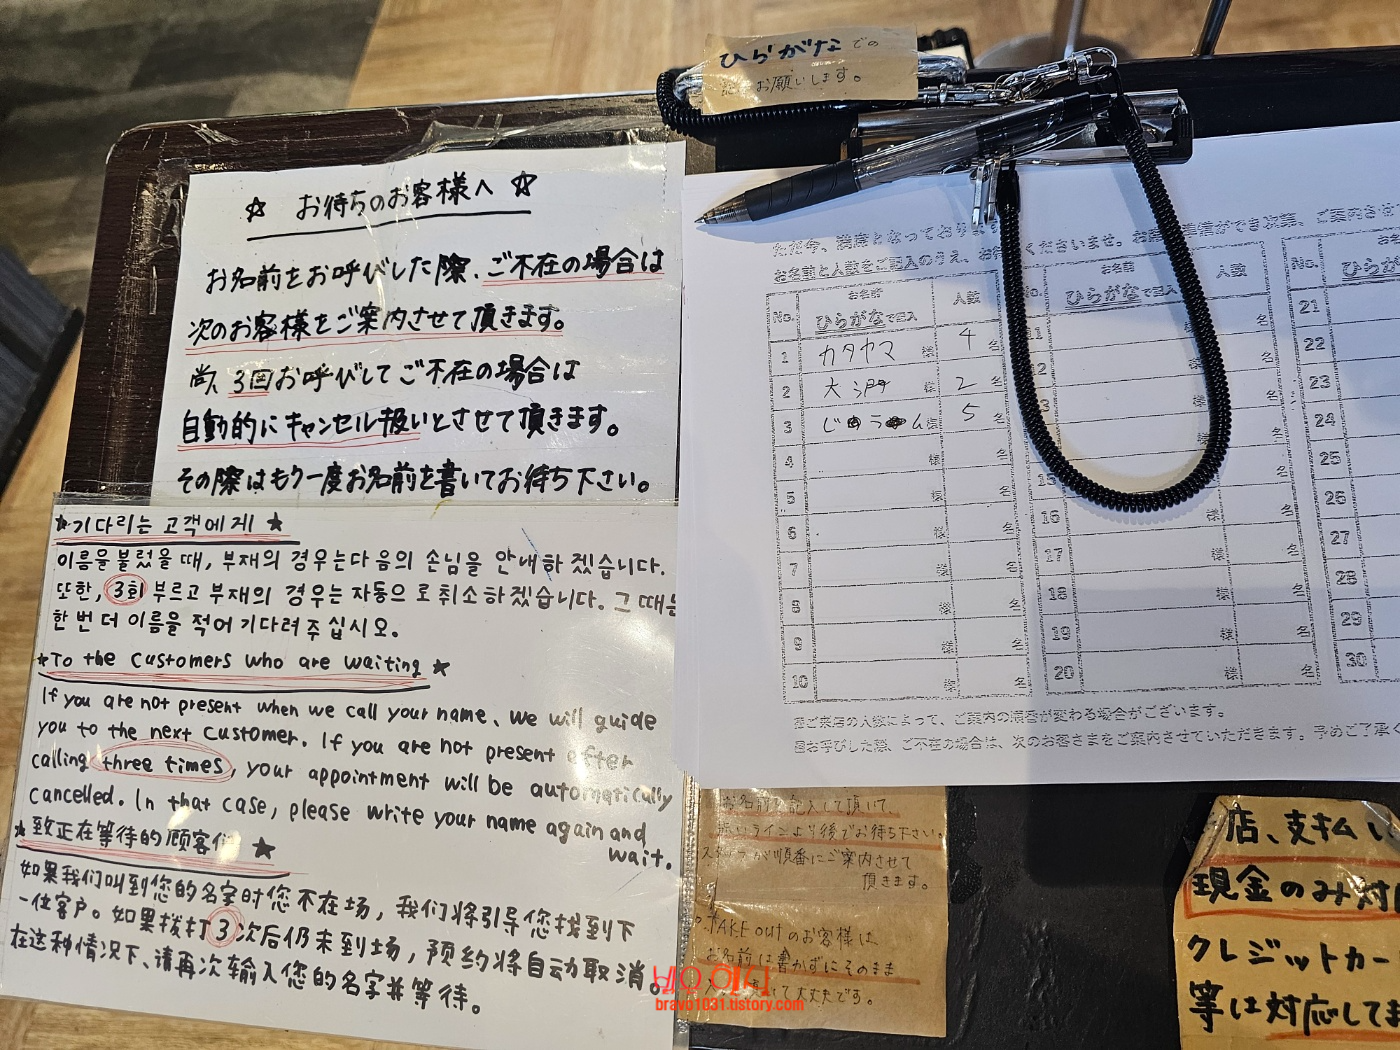 ひらがなでの
お願いします。
☆ お待ちのお客様へ ☆
お名前をお呼びした際、ご不在の場合は
次のお客様をご案内させて頂きます。
尚、3回お呼びしてご不在の場合は
自動的にキャンセル扱いとさせて頂きます。
その際はもう一度お名前を書いてお待ち下さい。
★기다리는 고객에게 ★
이름을 불렀을 때, 부재의 경우는 다음의 손님을 안내하겠습니다.
또한, 3회 부르고 부재의 경우는 자동으로 취소하겠습니다. 그 때는
한 번 더 이름을 적어 기다려 주십시오.
★To the customers who are waiting ★
If you are not present when we call your name, we will guide
you to the next customer. If you are not present after
calling three times, your appointment will be automatically
cancelled. In that case, please write your name again and
wait.
★致正在等待的顾客们 ★
如果我们叫到您的名字时您不在场，我们将引导您找到下
一位客户。如果拨打3次后仍未到场，预约将自动取消。
在这种情况下、请再次输入您的名字并等待。
ただ今、満席となっております
お名前と人数をご記入のうえ、お待 くださいませ。お席 準備ができ次第、ご案内させ
No. お名前 ひらがなで記入 人数
1 カタヤマ 様 4 名
2 大 様 2 名
3 じ ラ ム 様 5 名
4 様 名
5 様 名
6 様 名
7 様 名
8 様 名
9 様 名
10 様 名
No. お名前 ひらがなで記入 人数
様 名
2 様 名
様 名
様 名
様 名
16 様 名
17 様 名
18 様 名
19 様 名
20 様 名
No. ひらがな
21
22
23
24
25
26
27
28
29
30
ご来店の人数によって、ご案内の順番が変わる場合がございます。
回お呼びした際、ご不在の場合は、次のお客さまをご案内させていただきます。予めご了承く
お名前を記入して頂いて、
ラインより後でお待ち下さい。
スタッフが順番にご案内させて
頂きます。
・TAKE outのお客様は
お名前は書かずにそのまま
て大丈夫です。
店、支払い
現金のみ対
クレジットカー
等は対応してま
bravo1031.tistory.com